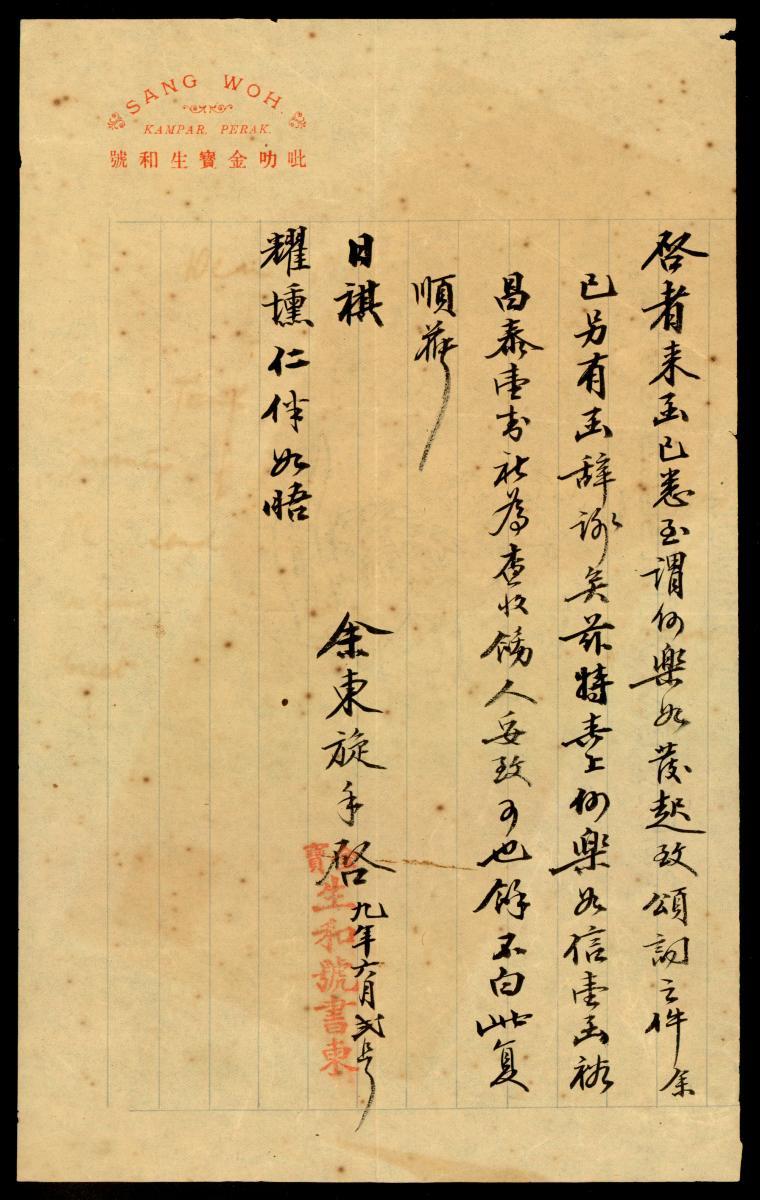 SANG WOH.
KAMPAR, PERAK.
號和生寶金叻吡
啓者来函已悉至謂何樂如發起致頌詞之件余
已另有函辞謝矣茲特夫上何樂如信壹函祈
昌泰壹封祈為查收飭人妥致可也餘不白此复
順
日祺
耀壎仁伴如晤
余東旋手啓
九年六月弍号
寶
生和號書柬